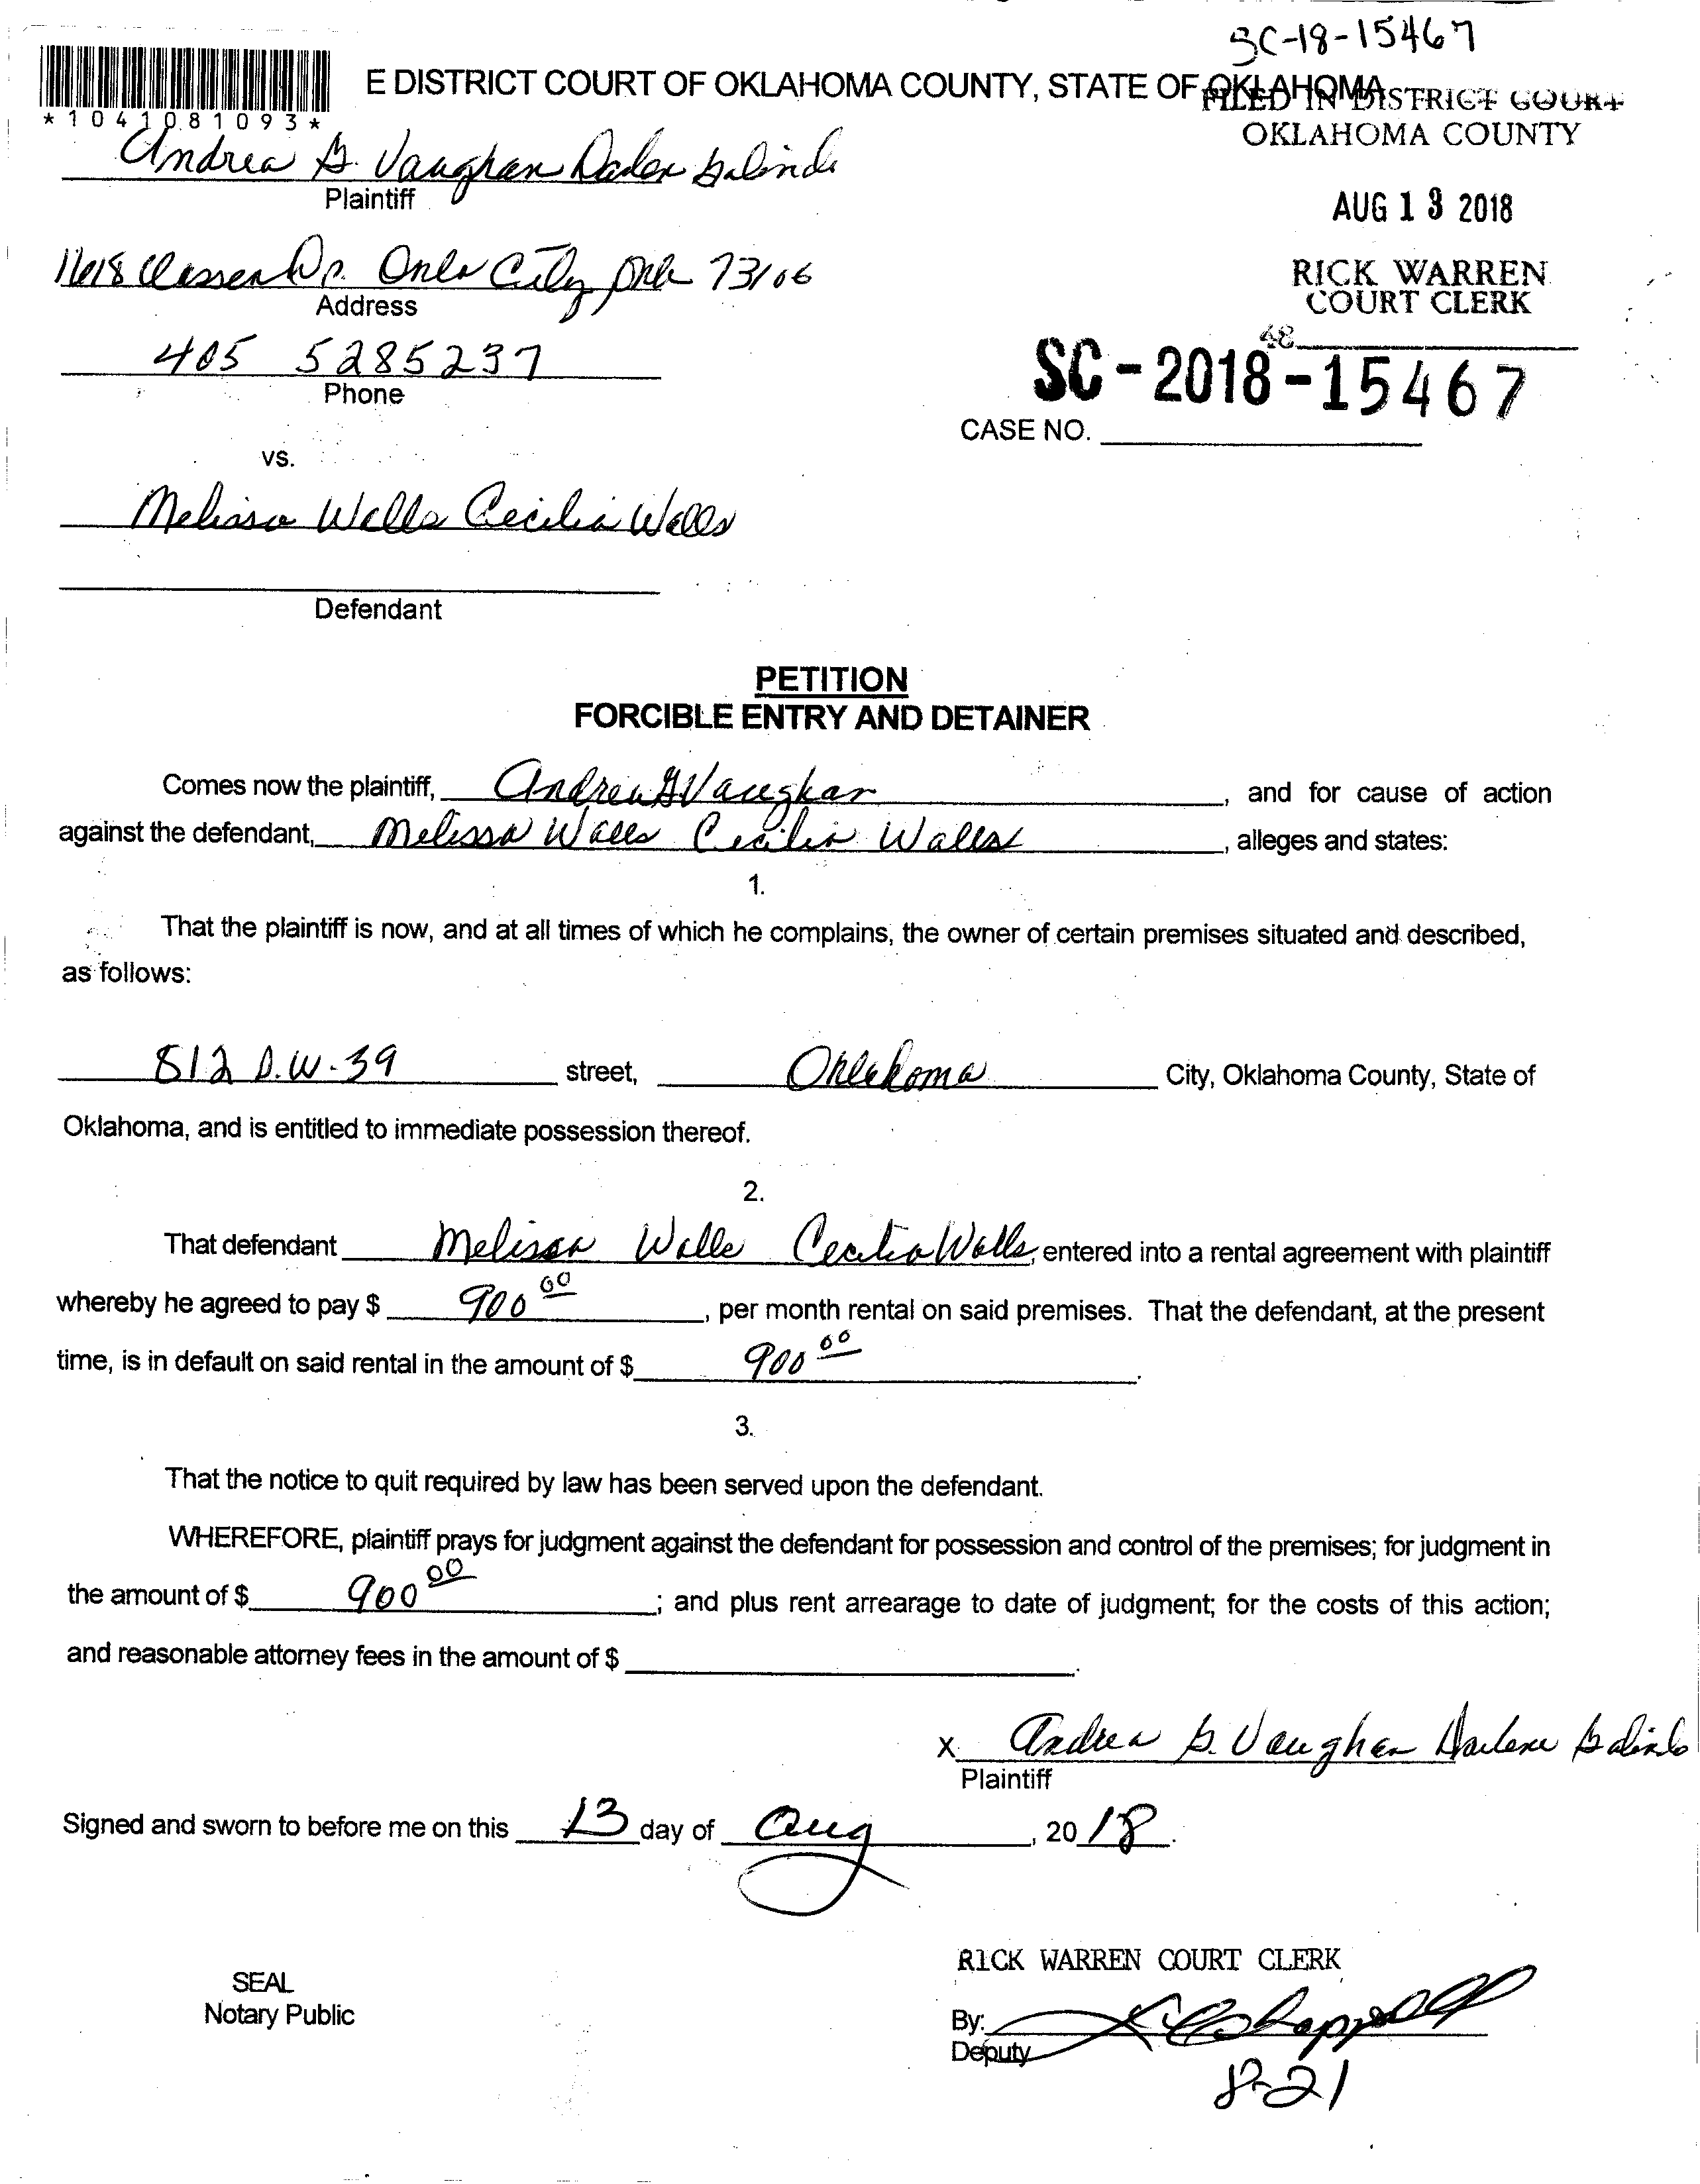 SC-18-15467
E DISTRICT COURT OF OKLAHOMA COUNTY, STATE OF OKLAHOMA
FILED IN DISTRICT COURT
OKLAHOMA COUNTY
*1041081093*
Andrea G. Vaughan Galindo
Plaintiff
AUG 13 2018
1618 Classen Dr. Okla City Okla 73106
Address
RICK WARREN
COURT CLERK
48
405 5285237
Phone
SC-2018-15467
CASE NO.
vs.
Melissa Walls Cecilia Walls
Defendant
PETITION
FORCIBLE ENTRY AND DETAINER
Comes now the plaintiff, Andrea G Vaughan, and for cause of action
against the defendant, Melissa Walls Cecilia Walls, alleges and states:
1.
That the plaintiff is now, and at all times of which he complains, the owner of certain premises situated and described,
as follows:
812 S.W.39 street, Oklahoma City, Oklahoma County, State of
Oklahoma, and is entitled to immediate possession thereof.
2.
That defendant Melissa Walls Cecilia Walls, entered into a rental agreement with plaintiff
whereby he agreed to pay $ 900 00, per month rental on said premises. That the defendant, at the present
time, is in default on said rental in the amount of $ 900 00.
3.
That the notice to quit required by law has been served upon the defendant.
WHEREFORE, plaintiff prays for judgment against the defendant for possession and control of the premises; for judgment in
the amount of $ 900 00; and plus rent arrearage to date of judgment; for the costs of this action;
and reasonable attorney fees in the amount of $ .
X Andrea G. Vaughan Darlene Galindo
Plaintiff
Signed and sworn to before me on this 13 day of Aug, 20 18.
RICK WARREN COURT CLERK
SEAL
Notary Public
By:
Deputy
8-21